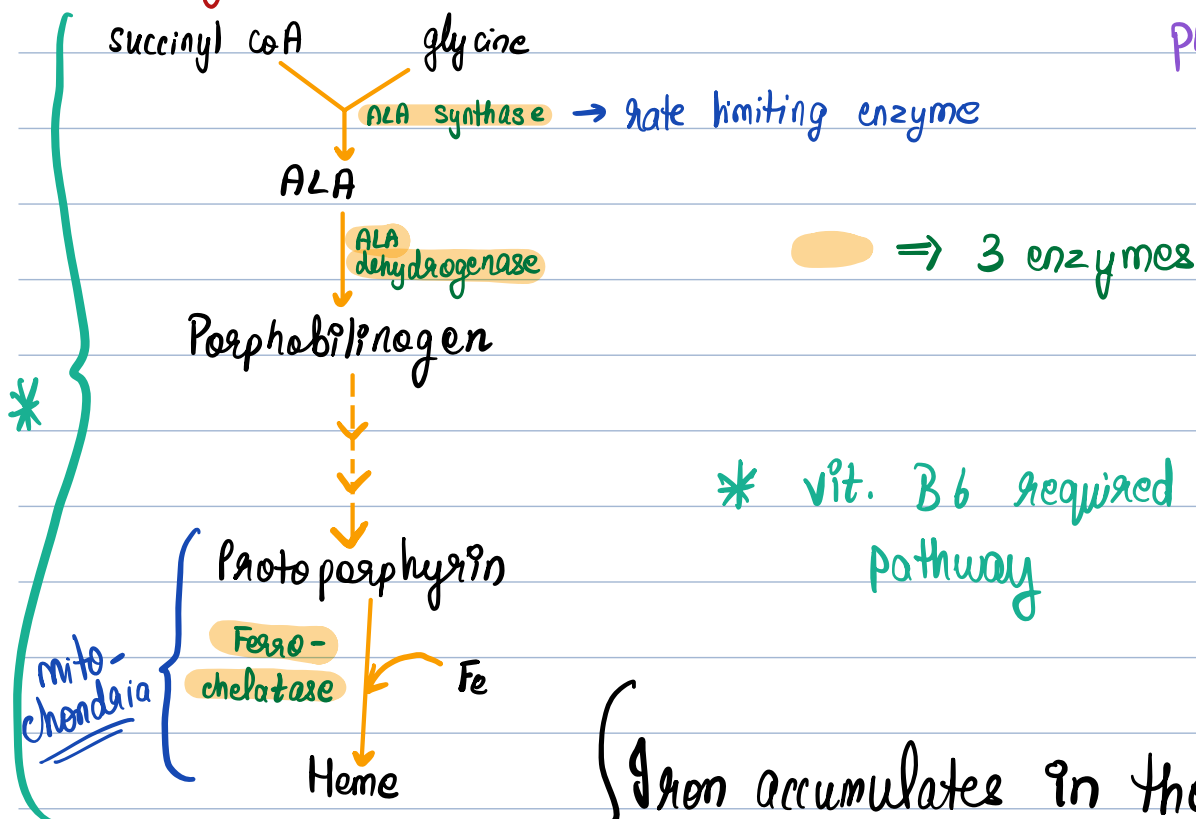 succinyl coA glycine
ALA synthase → rate limiting enzyme
ALA
ALA
dehydrogenase
⇒ 3 enzymes
Porphobilinogen
* vit. B6 required
pathway
*
Protoporphyrin
Ferro-
chelatase
Fe
mito-
chondria
Heme
Iron accumulates in the